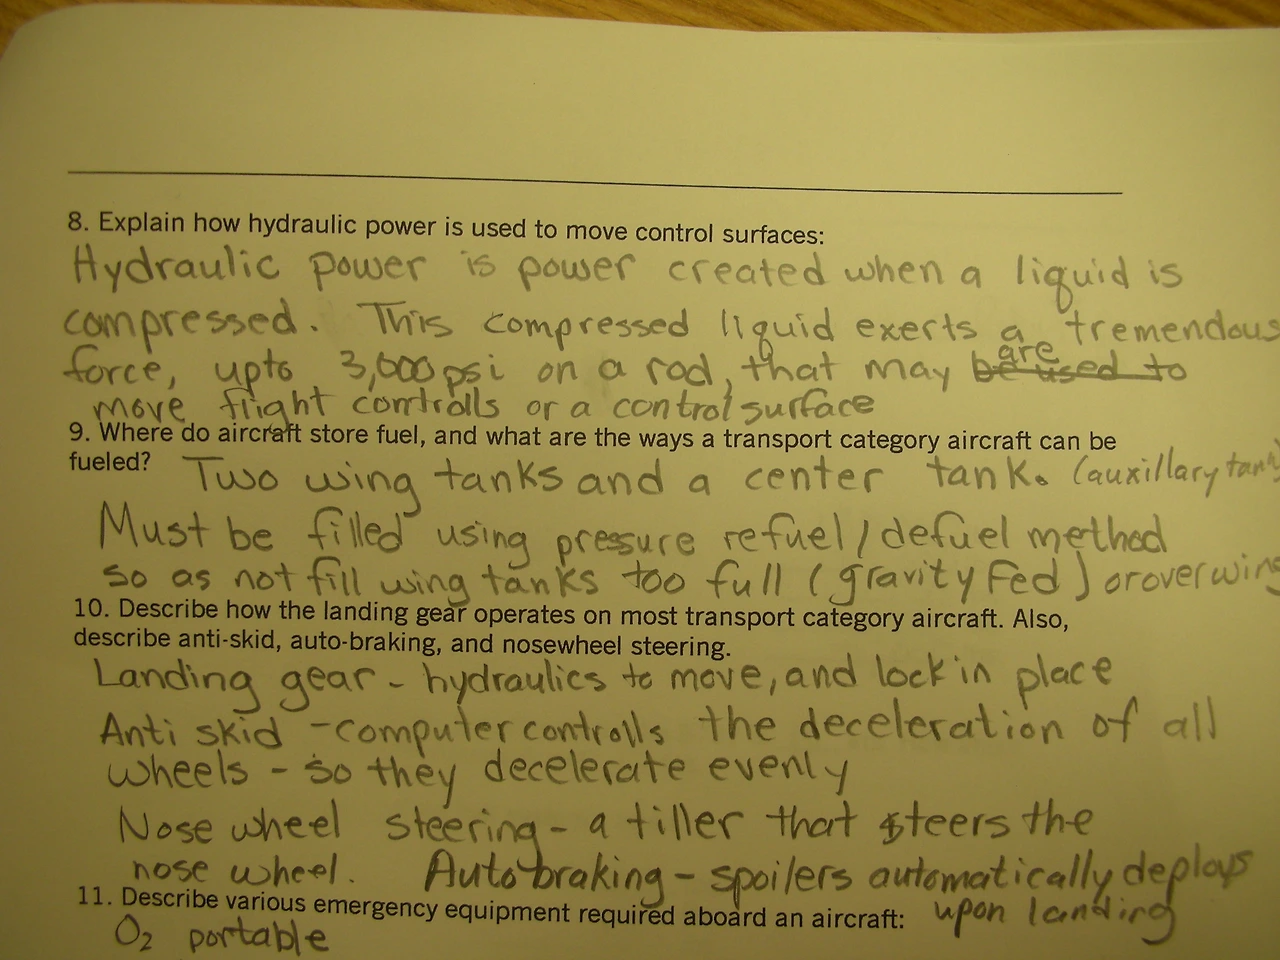 8. Explain how hydraulic power is used to move control surfaces:
Hydraulic power is power created when a liquid is
compressed. This compressed liquid exerts a tremendous
force, upto 3,000 psi on a rod, that may are be used to
move flight controlls or a control surface
9. Where do aircraft store fuel, and what are the ways a transport category aircraft can be
fueled? Two wing tanks and a center tank. (auxillary tank)
Must be filled using pressure refuel/defuel method
so as not fill wing tanks too full (gravity Fed) or overwing
10. Describe how the landing gear operates on most transport category aircraft. Also,
describe anti-skid, auto-braking, and nosewheel steering.
Landing gear - hydraulics to move, and lock in place
Anti skid - computer controlls the deceleration of all
wheels - so they decelerate evenly
Nose wheel steering - a tiller that steers the
nose wheel. Auto braking - spoilers automatically deploys
11. Describe various emergency equipment required aboard an aircraft: upon landing
O2 portable